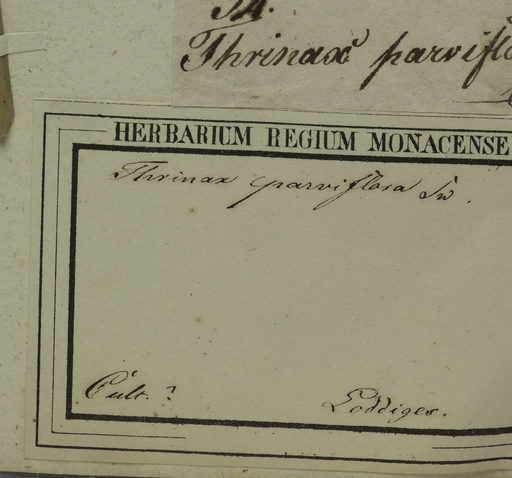 54.
Thrinax parviflo
HERBARIUM REGIUM MONACENSE
Thrinax parviflora Sw.
Cult. ?
Loddiges.